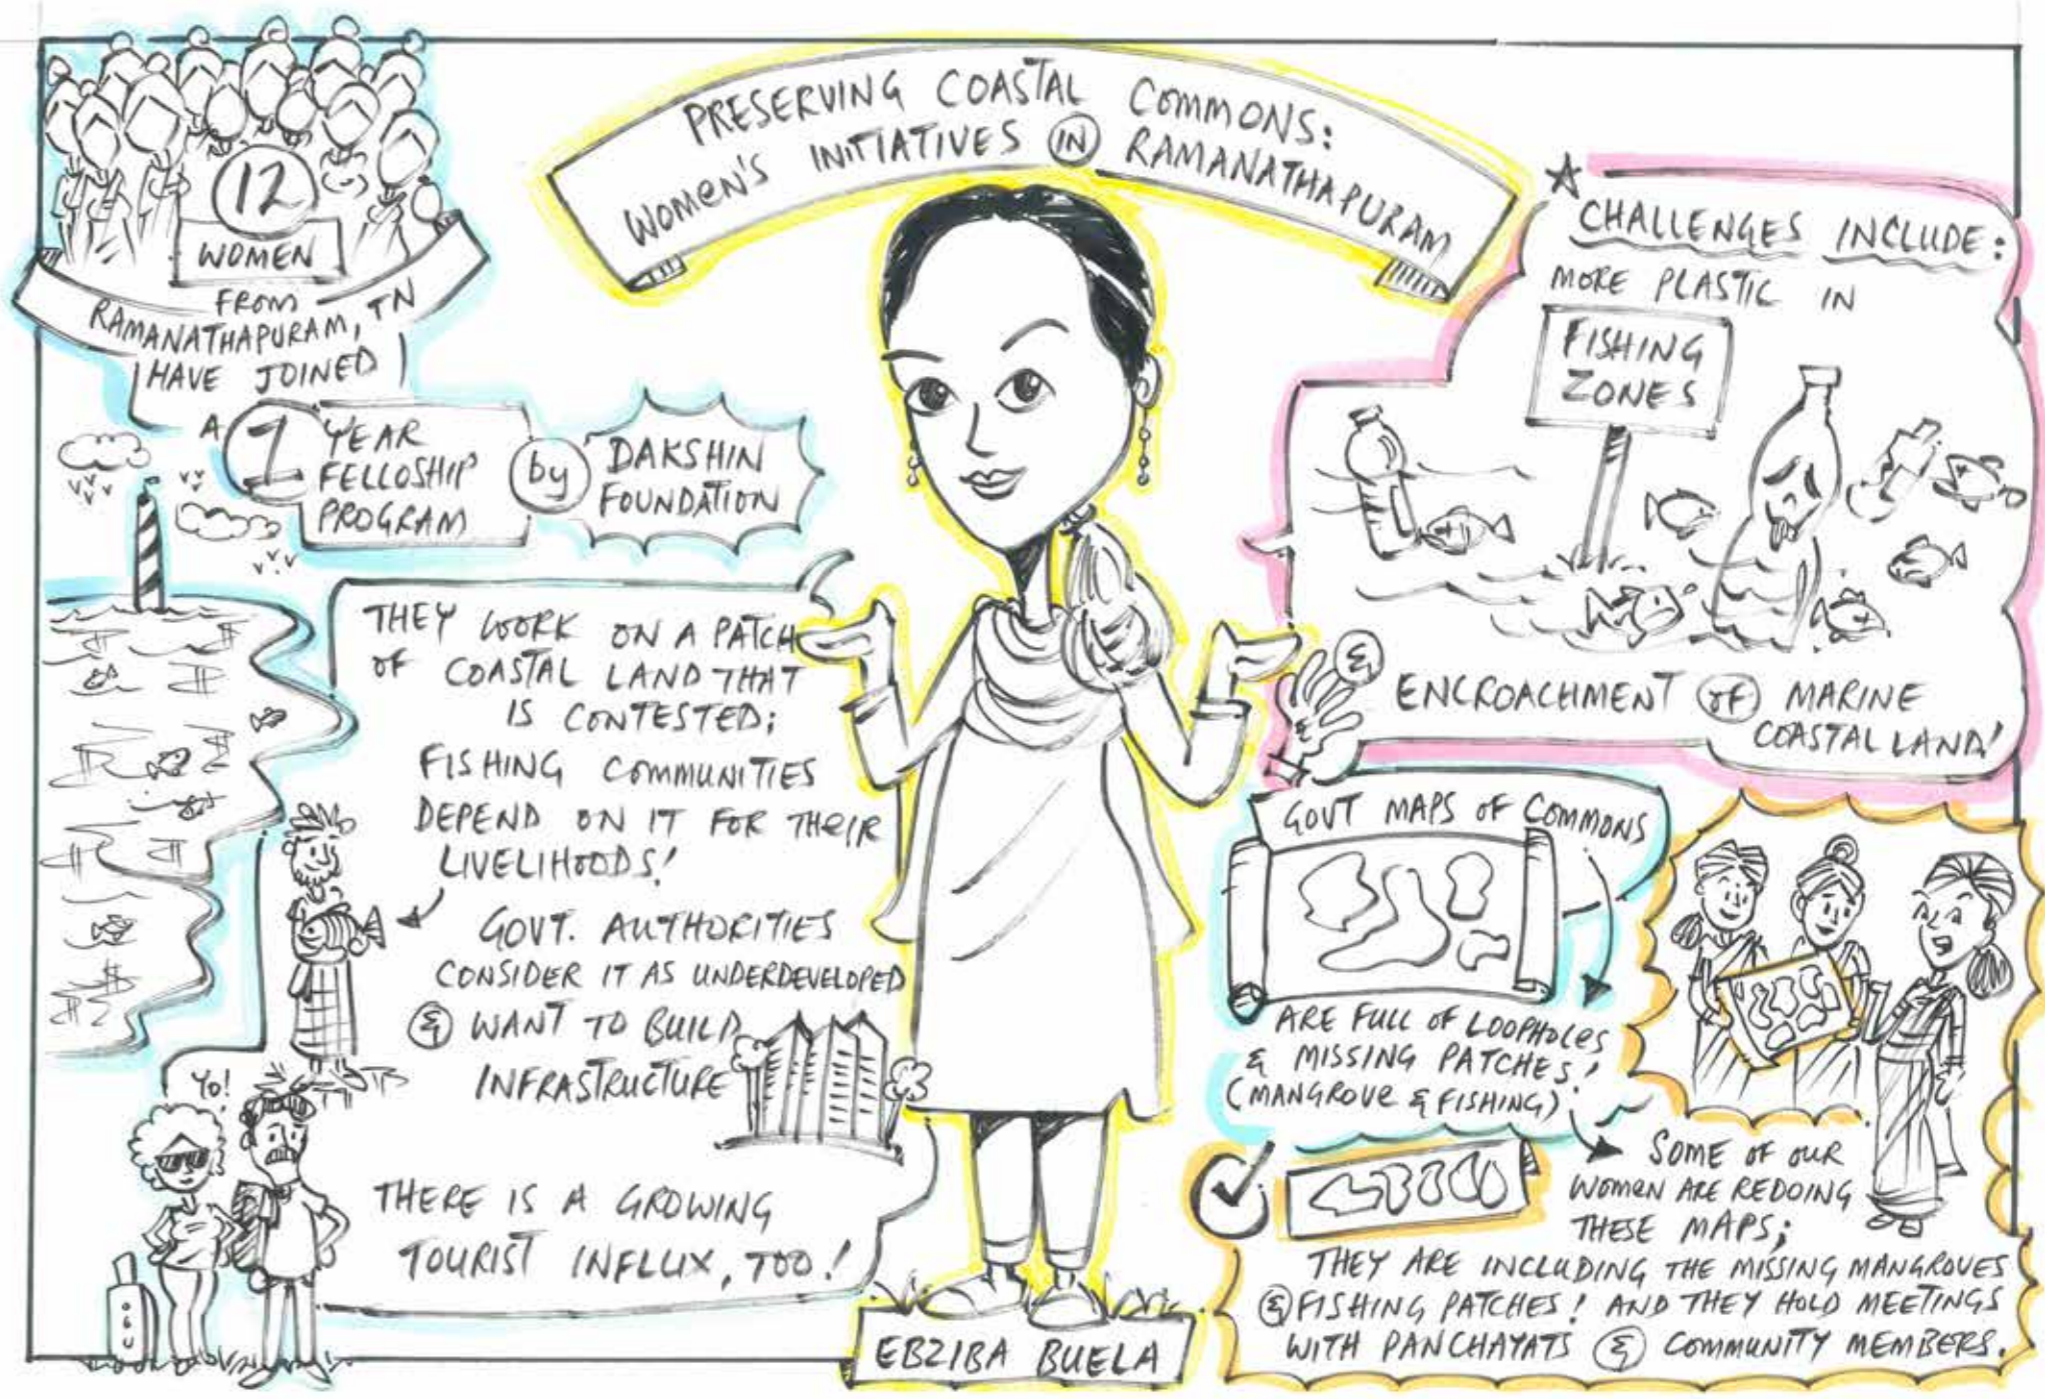 PRESERVING COASTAL COMMONS:
WOMEN'S INITIATIVES IN RAMANATHAPURAM
12
WOMEN
FROM
RAMANATHAPURAM, TN
HAVE JOINED
A 1 YEAR
FELLOSHIP
PROGRAM
by
DAKSHIN
FOUNDATION
THEY WORK ON A PATCH
OF COASTAL LAND THAT
IS CONTESTED;
FISHING COMMUNITIES
DEPEND ON IT FOR THEIR
LIVELIHOODS!
GOVT. AUTHORITIES
CONSIDER IT AS UNDERDEVELOPED
& WANT TO BUILD
INFRASTRUCTURE
YO!
THERE IS A GROWING
TOURIST INFLUX, TOO!
EBZIBA BUELA
CHALLENGES INCLUDE:
MORE PLASTIC IN
FISHING
ZONES
& ENCROACHMENT OF MARINE
COASTAL LAND!
GOVT MAPS OF COMMONS
ARE FULL OF LOOPHOLES
& MISSING PATCHES!
(MANGROVE & FISHING)
SOME OF OUR
WOMEN ARE REDOING
THESE MAPS;
THEY ARE INCLUDING THE MISSING MANGROVES
& FISHING PATCHES! AND THEY HOLD MEETINGS
WITH PANCHAYATS & COMMUNITY MEMBERS.